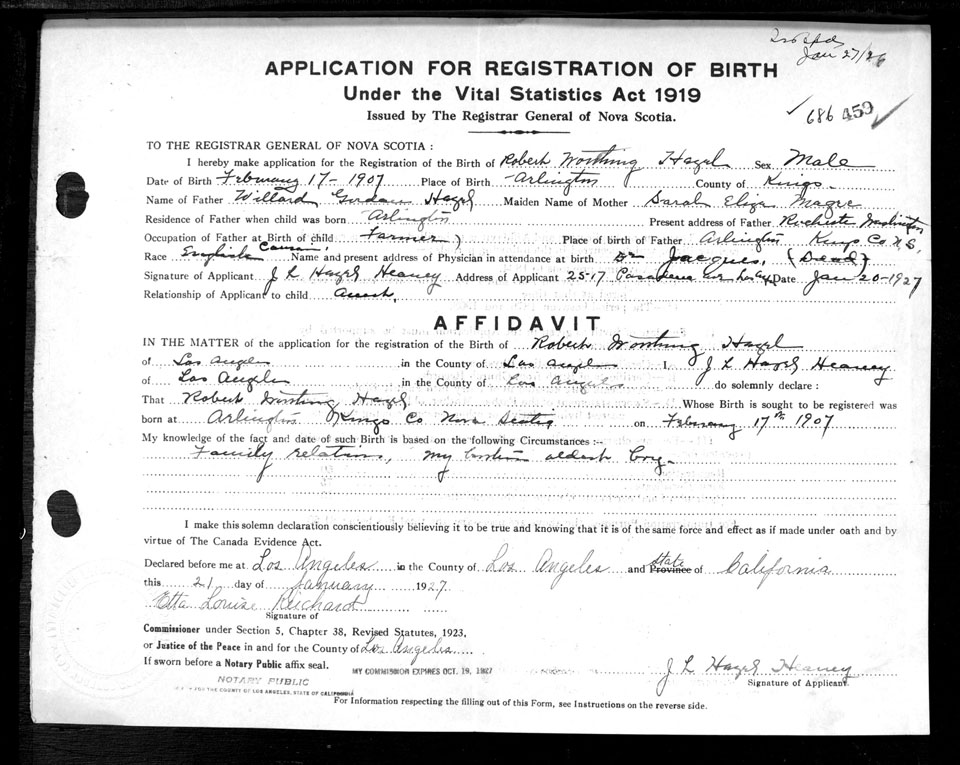 Jan 27/26
APPLICATION FOR REGISTRATION OF BIRTH
Under the Vital Statistics Act 1919
686 459
Issued by The Registrar General of Nova Scotia.
TO THE REGISTRAR GENERAL OF NOVA SCOTIA :
I hereby make application for the Registration of the Birth of Robert Worthing Hazel Sex Male
Date of Birth February 17 - 1907 Place of Birth Arlington County of Kings
Name of Father Willard Hazel Maiden Name of Mother Sarah Eliza
Residence of Father when child was born Arlington Present address of Father Washington
Occupation of Father at Birth of child Farmer Place of birth of Father Arlington Kings Co N.S.
Race English Name and present address of Physician in attendance at birth Dr Jacques, (Dead)
Signature of Applicant J L Hazel Heaney Address of Applicant 25-17 Pasadena ave Date Jan 20-1927
Relationship of Applicant to child Aunt,
AFFIDAVIT
IN THE MATTER of the application for the registration of the Birth of Robert Worthing Hazel
of Los Angeles in the County of Los Angeles I, J L Hazel Heaney
of Los Angeles in the County of Los Angeles do solemnly declare :
That Robert Worthing Hazel Whose Birth is sought to be registered was
born at Arlington Kings Co Nova Scotia on February 17th 1907
My knowledge of the fact and date of such Birth is based on the following Circumstances :—
Family relation, my oldest boy-
I make this solemn declaration conscientiously believing it to be true and knowing that it is of the same force and effect as if made under oath and by
virtue of The Canada Evidence Act.
Declared before me at Los Angeles in the County of Los Angeles and State Province of California
this 21 day of January 1927
Etta Louise Reichard
Signature of
Commissioner under Section 5, Chapter 38, Revised Statutes, 1923,
or Justice of the Peace in and for the County of Los Angeles
If sworn before a Notary Public affix seal. MY COMMISSION EXPIRES OCT. 19, 1927
J L Hazel Heaney
Signature of Applicant
NOTARY PUBLIC
FOR THE COUNTY OF LOS ANGELES, STATE OF CALIFORNIA
For Information respecting the filling out of this Form, see Instructions on the reverse side.